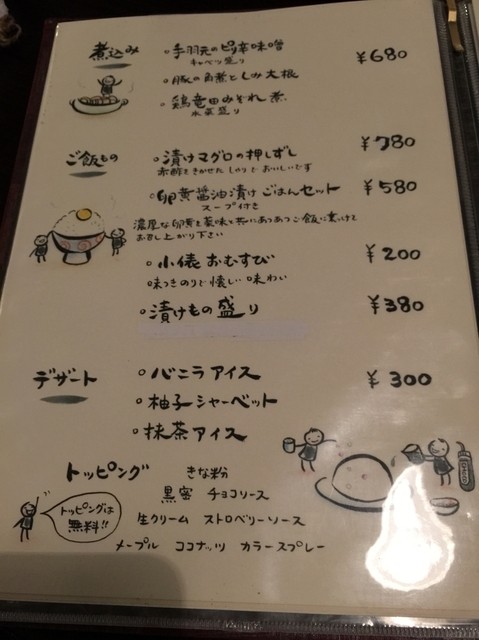 煮込み
・手羽元のピリ辛味噌 ¥680
キャベツ盛り
・豚の角煮としみ大根
・鶏竜田みぞれ煮
水菜盛り
ご飯もの
・漬けマグロの押しずし ¥780
赤酢をきかせたしゃりでおいしいです
・卵黄醤油漬けごはんセット ¥580
スープ付き
濃厚な卵黄を薬味と共にあつあつご飯に素けて
お召し上がり下さい
・小俵おむすび ¥200
味つきのりで懐しい味わい
・漬けもの盛り ¥380
デザート
・バニラアイス ¥300
・柚子シャーベット
・抹茶アイス
トッピング きな粉
黒蜜 チョコソース
トッピングは
無料!!
生クリーム ストロベリーソース
メープル ココナッツ カラースプレー